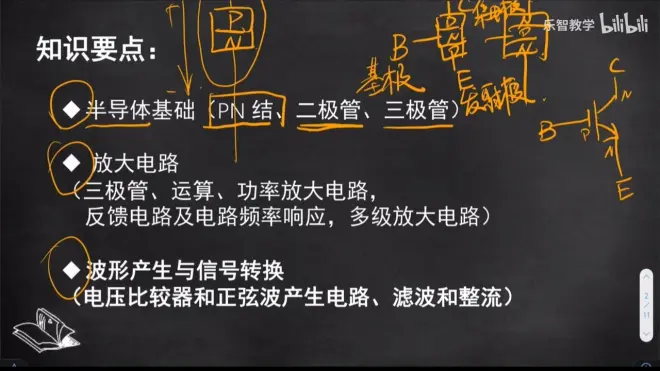 乐智教学 bilibili
P
N
C 集电极
B
基极
E
发射极
知识要点：
◆ 半导体基础（PN 结、二极管、三极管）
C
N
B
P
N
E
◆ 放大电路
（三极管、运算、功率放大电路，
反馈电路及电路频率响应，多级放大电路）
◆ 波形产生与信号转换
（电压比较器和正弦波产生电路、滤波和整流）
2
11